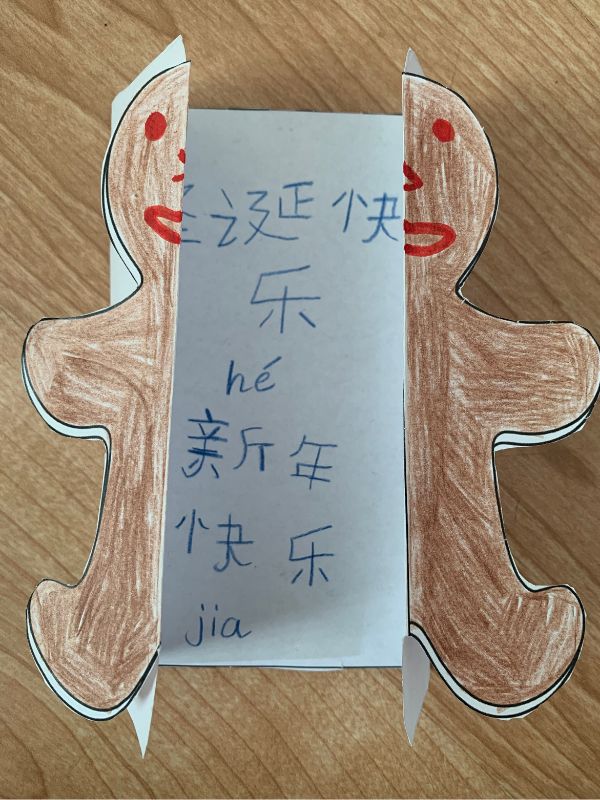 圣诞快
乐
hé
新年
快乐
jia